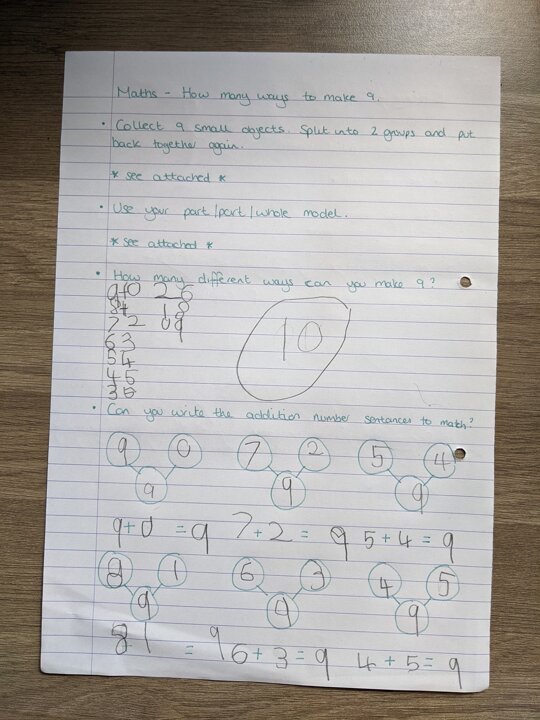 Maths - How many ways to make 9.
• Collect 9 small objects. Split into 2 groups and put
back together again.
* see attached *
• Use your part/part/whole model.
* see attached *
• How many different ways can you make 9?
9+0 2 6
1 8
7 2 0 9
6 3
5 4
4 5
3 6
10
• Can you write the addition number sentences to math?
9 0 7 2 5 4
9 9 9
9+0 = 9 7+2 = 9 5+4 = 9
8 1 6 3 4 5
9 9 9
8 1 = 9 6+3=9 4+5=9